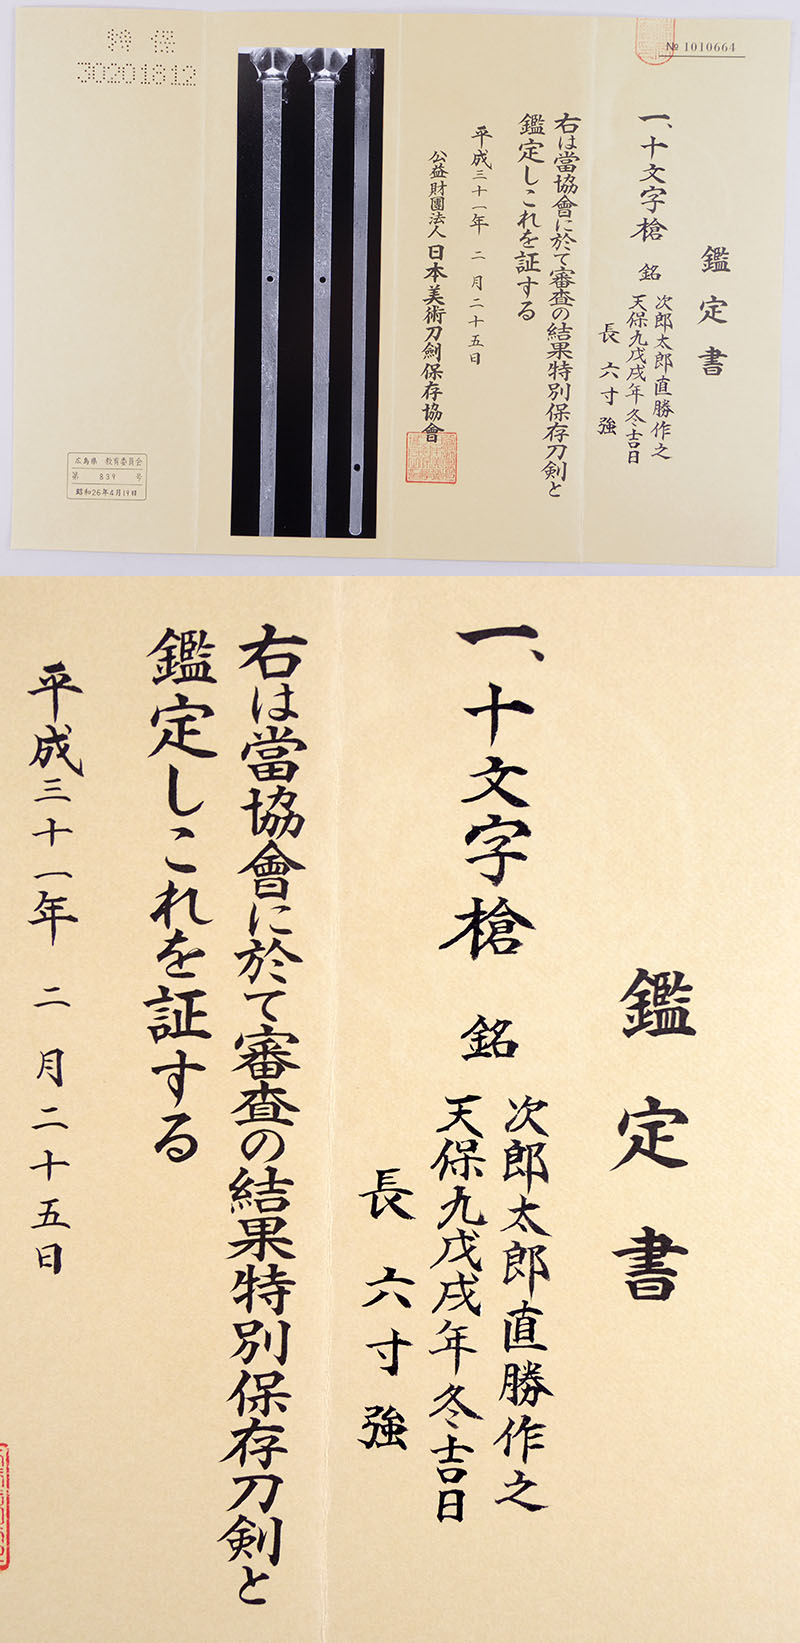 № 1010664
鑑定書
一、十文字槍 銘
次郎太郎直勝作之
天保九戊戌年冬吉日
長六寸強
右は當協會に於て審査の結果特別保存刀剣と
鑑定しこれを証する
平成三十一年 二月二十五日
公益財團法人 日本美術刀劍保存協會
特保
30201812
広島県 教育委員会
第 839 号
昭和26年4月19日
鑑定書
一、十文字槍 銘
次郎太郎直勝作之
天保九戊戌年冬吉日
長六寸強
右は當協會に於て審査の結果特別保存刀剣と
鑑定しこれを証する
平成三十一年 二月二十五日